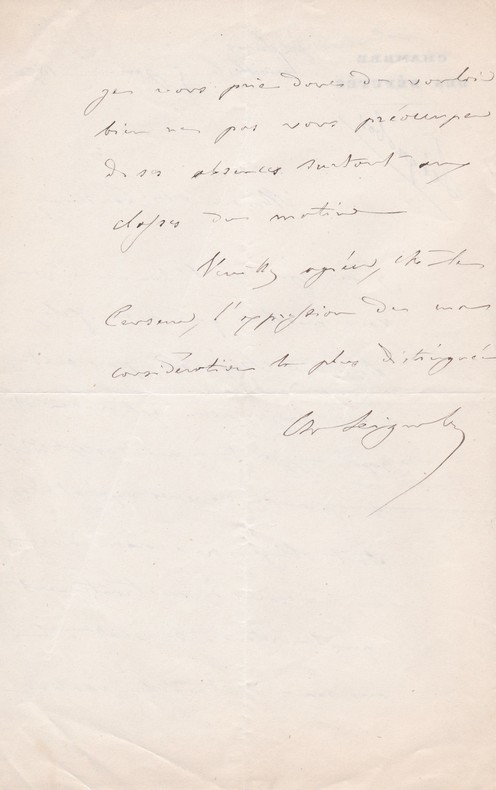 je vous prie donc de vouloir
bien ne pas vous préoccuper
de ses absences surtout aux
classes du matin
Veuillez agréer, Mr le
Censeur, l'expression de ma
considération la plus distinguée
Ch Seignobos